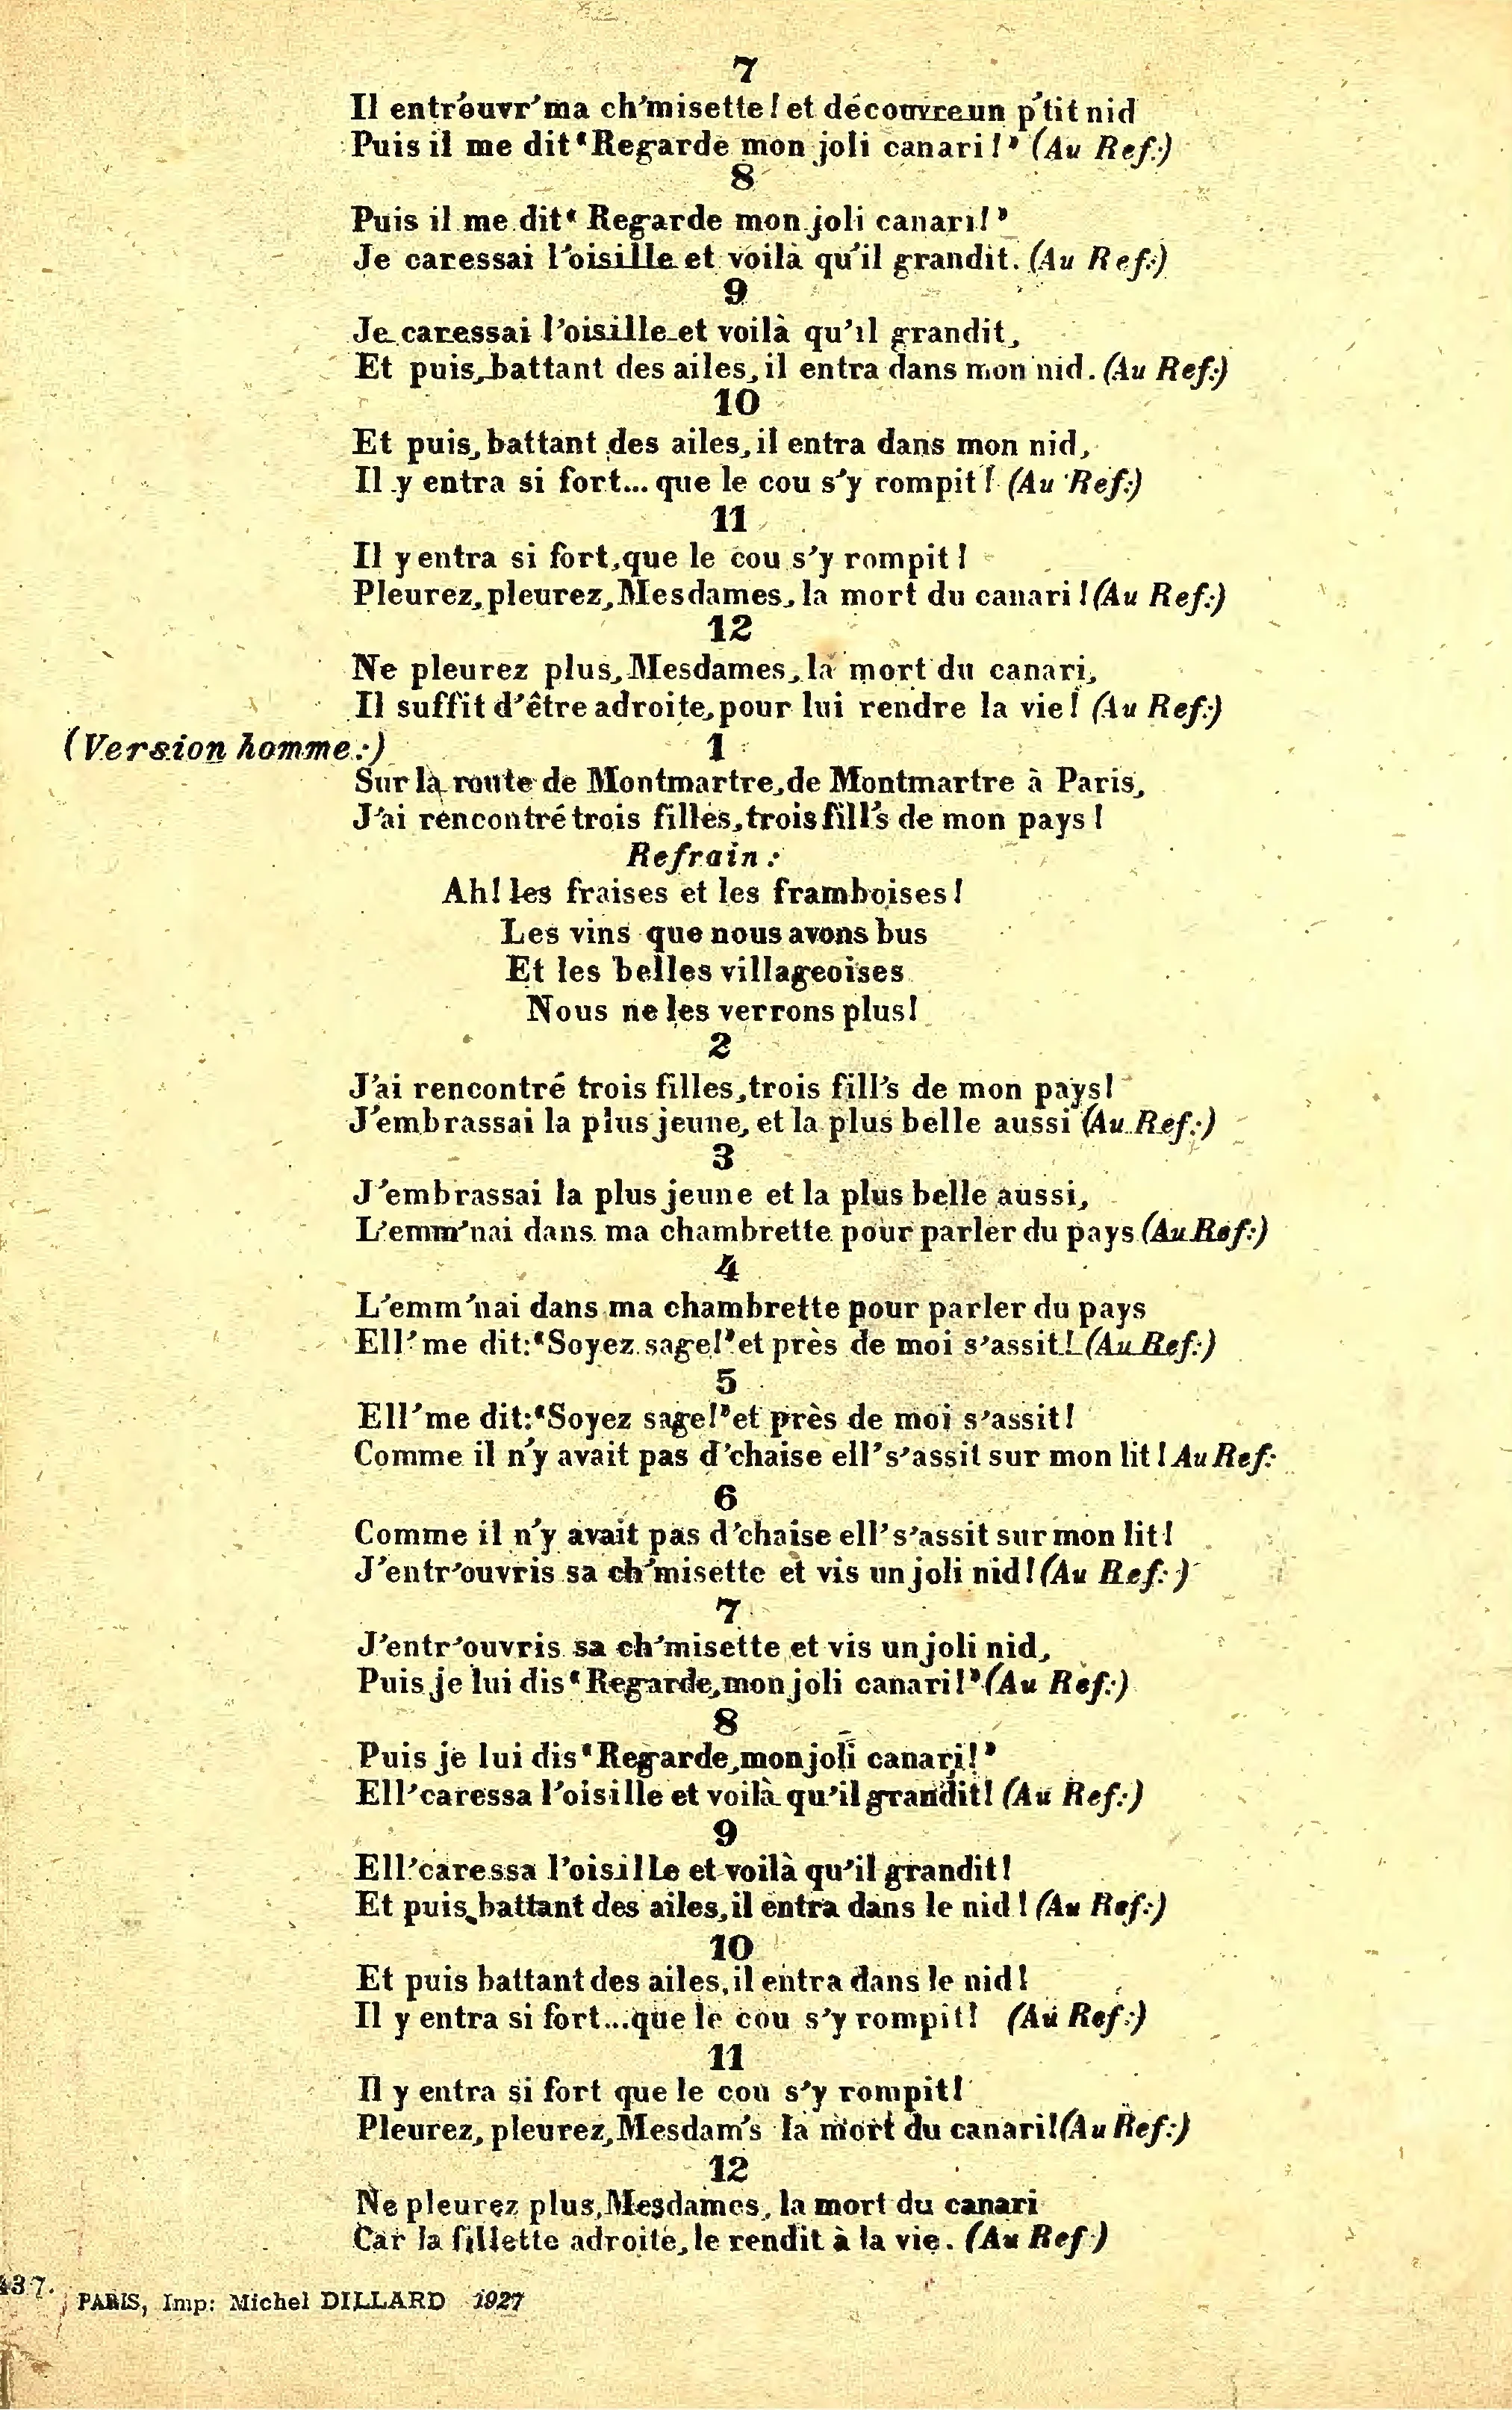 7
Il entr'ouvr'ma ch'misette! et découvre un p'tit nid
Puis il me dit "Regarde mon joli canari!" (Au Ref:)
8
Puis il me dit "Regarde mon joli canari!"
Je caressai l'oisille et voilà qu'il grandit. (Au Ref:)
9
Je caressai l'oisille et voilà qu'il grandit,
Et puis, battant des ailes, il entra dans mon nid. (Au Ref:)
10
Et puis, battant des ailes, il entra dans mon nid,
Il y entra si fort... que le cou s'y rompit! (Au Ref:)
11
Il y entra si fort, que le cou s'y rompit!
Pleurez, pleurez, Mesdames, la mort du canari! (Au Ref:)
12
Ne pleurez plus, Mesdames, la mort du canari,
Il suffit d'être adroite, pour lui rendre la vie! (Au Ref:)
(Version homme:) 1
Sur la route de Montmartre, de Montmartre à Paris,
J'ai rencontré trois filles, trois fill's de mon pays!
Refrain:
Ah! les fraises et les framboises!
Les vins que nous avons bus
Et les belles villageoises
Nous ne les verrons plus!
2
J'ai rencontré trois filles, trois fill's de mon pays!
J'embrassai la plus jeune, et la plus belle aussi (Au Ref:)
3
J'embrassai la plus jeune et la plus belle aussi,
L'emm'nai dans ma chambrette pour parler du pays (Au Ref:)
4
L'emm'nai dans ma chambrette pour parler du pays
Ell' me dit: "Soyez sage!" et près de moi s'assit! (Au Ref:)
5
Ell'me dit: "Soyez sage!" et près de moi s'assit!
Comme il n'y avait pas d'chaise ell's'assit sur mon lit! Au Ref:
6
Comme il n'y avait pas d'chaise ell's'assit sur mon lit!
J'entr'ouvris sa ch'misette et vis un joli nid! (Au Ref:)
7
J'entr'ouvris sa ch'misette et vis un joli nid,
Puis je lui dis "Regarde, mon joli canari!" (Au Ref:)
8
Puis je lui dis "Regarde, mon joli canari!"
Ell'caressa l'oisille et voilà qu'il grandit! (Au Ref:)
9
Ell'caressa l'oisille et voilà qu'il grandit!
Et puis, battant des ailes, il entra dans le nid! (Au Ref:)
10
Et puis battant des ailes, il entra dans le nid!
Il y entra si fort...que le cou s'y rompit! (Au Ref:)
11
Il y entra si fort que le cou s'y rompit!
Pleurez, pleurez, Mesdam's la mort du canari! (Au Ref:)
12
Ne pleurez plus, Mesdames, la mort du canari
Car la fillette adroite, le rendit à la vie. (Au Ref)
PARIS, Imp: Michel DILLARD 1927